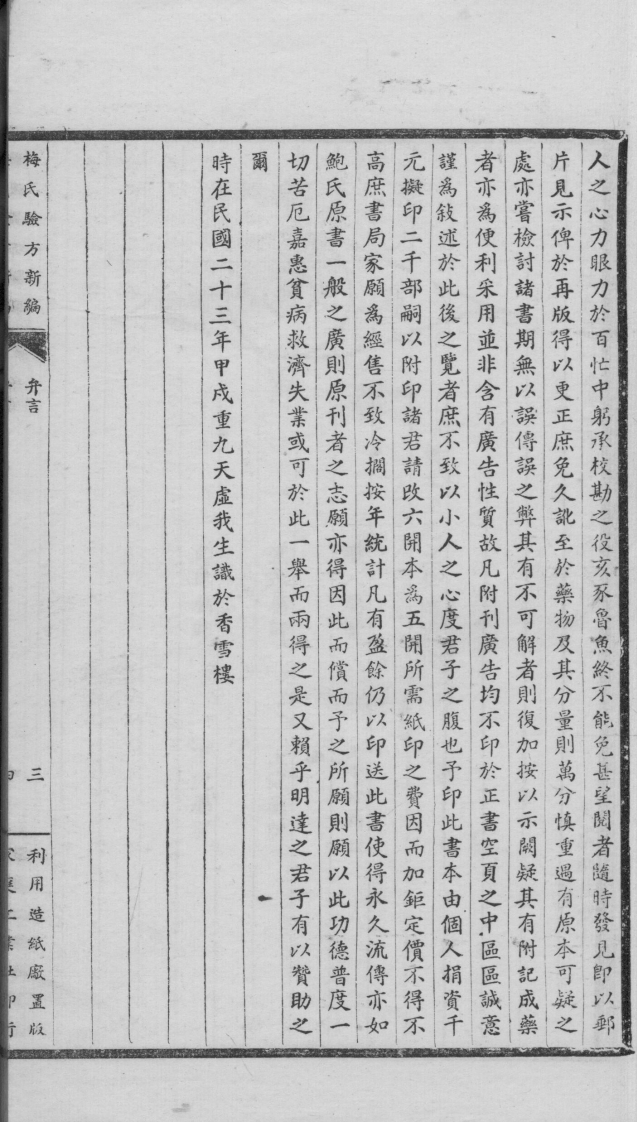 人之心力眼力於百忙中躬承校勘之役亥豕魯魚終不能免甚望閱者隨時發見即以郵
片見示俾於再版得以更正庶免久訛至於藥物及其分量則萬分慎重過有原本可疑之
處亦嘗檢討諸書期無以誤傳誤之弊其有不可解者則復加按以示闕疑其有附記成藥
者亦為便利采用並非含有廣告性質故凡附刊廣告均不印於正書空頁之中區區誠意
謹為敍述於此後之覽者庶不致以小人之心度君子之腹也予印此書本由個人捐資千
元擬印二千部嗣以附印諸君請改六開本為五開所需紙印之費因而加鉅定價不得不
高庶書局家願為經售不致冷擱按年統計凡有盈餘仍以印送此書使得永久流傳亦如
鮑氏原書一般之廣則原刊者之志願亦得因此而償而予之所願則願以此功德普度一
切苦厄嘉惠貧病救濟失業或可於此一舉而兩得之是又賴乎明達之君子有以贊助之
爾
時在民國二十三年甲戌重九天虛我生識於香雪樓
梅氏驗方新編
弁言
三
利用造紙廠置版